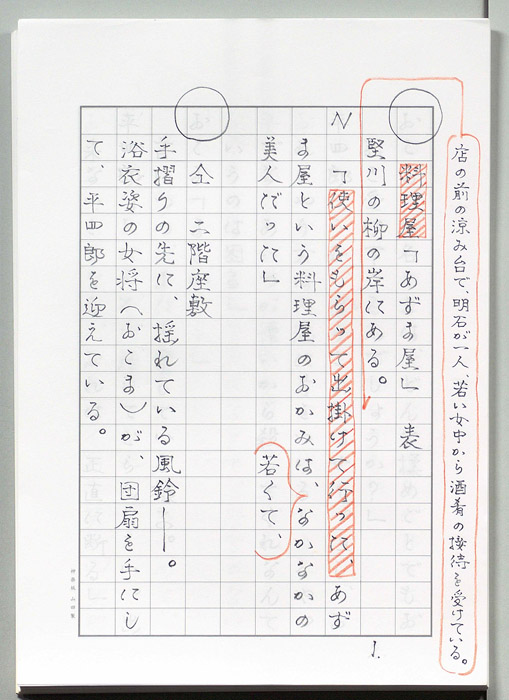 店の前の涼み台で、明石が一人、若い女中から酒肴の接待を受けている。
料理屋「あずま屋」 表
堅川の柳の岸にある。
N「使いをもらって出掛けて行った、あず
ま屋という料理屋のおかみは、なかなかの
若くて、
美人だった」
仝 二階座敷
手摺りの先に、揺れている風鈴——。
浴衣姿の女将(おこま)が、団扇を手にし
て、平四郎を迎えている。
1.